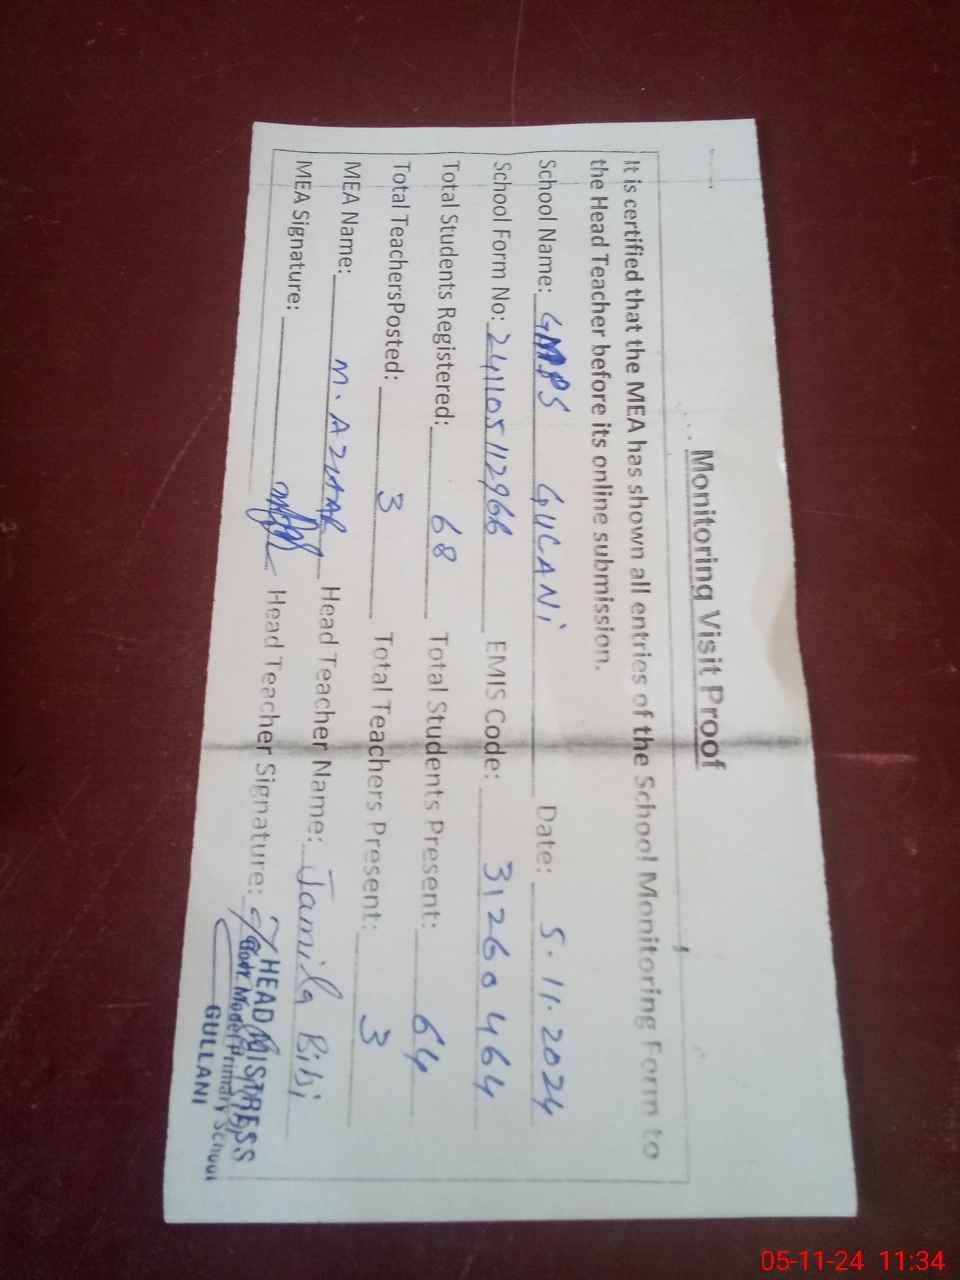 Monitoring Visit Proof
It is certified that the MEA has shown all entries of the School Monitoring Form to
the Head Teacher before its online submission.
School Name: GMPS GULANi Date: 5.11.2024
School Form No: 241105112966 EMIS Code: 31260464
Total Students Registered: 68 Total Students Present: 64
Total TeachersPosted: 3 Total Teachers Present: 3
MEA Name: M. AZHAR Head Teacher Name: Jamila Bibi
MEA Signature: Head Teacher Signature:
HEAD MISTRESS
Govt. Model Primary School
GULLANI
05-11-24 11:34